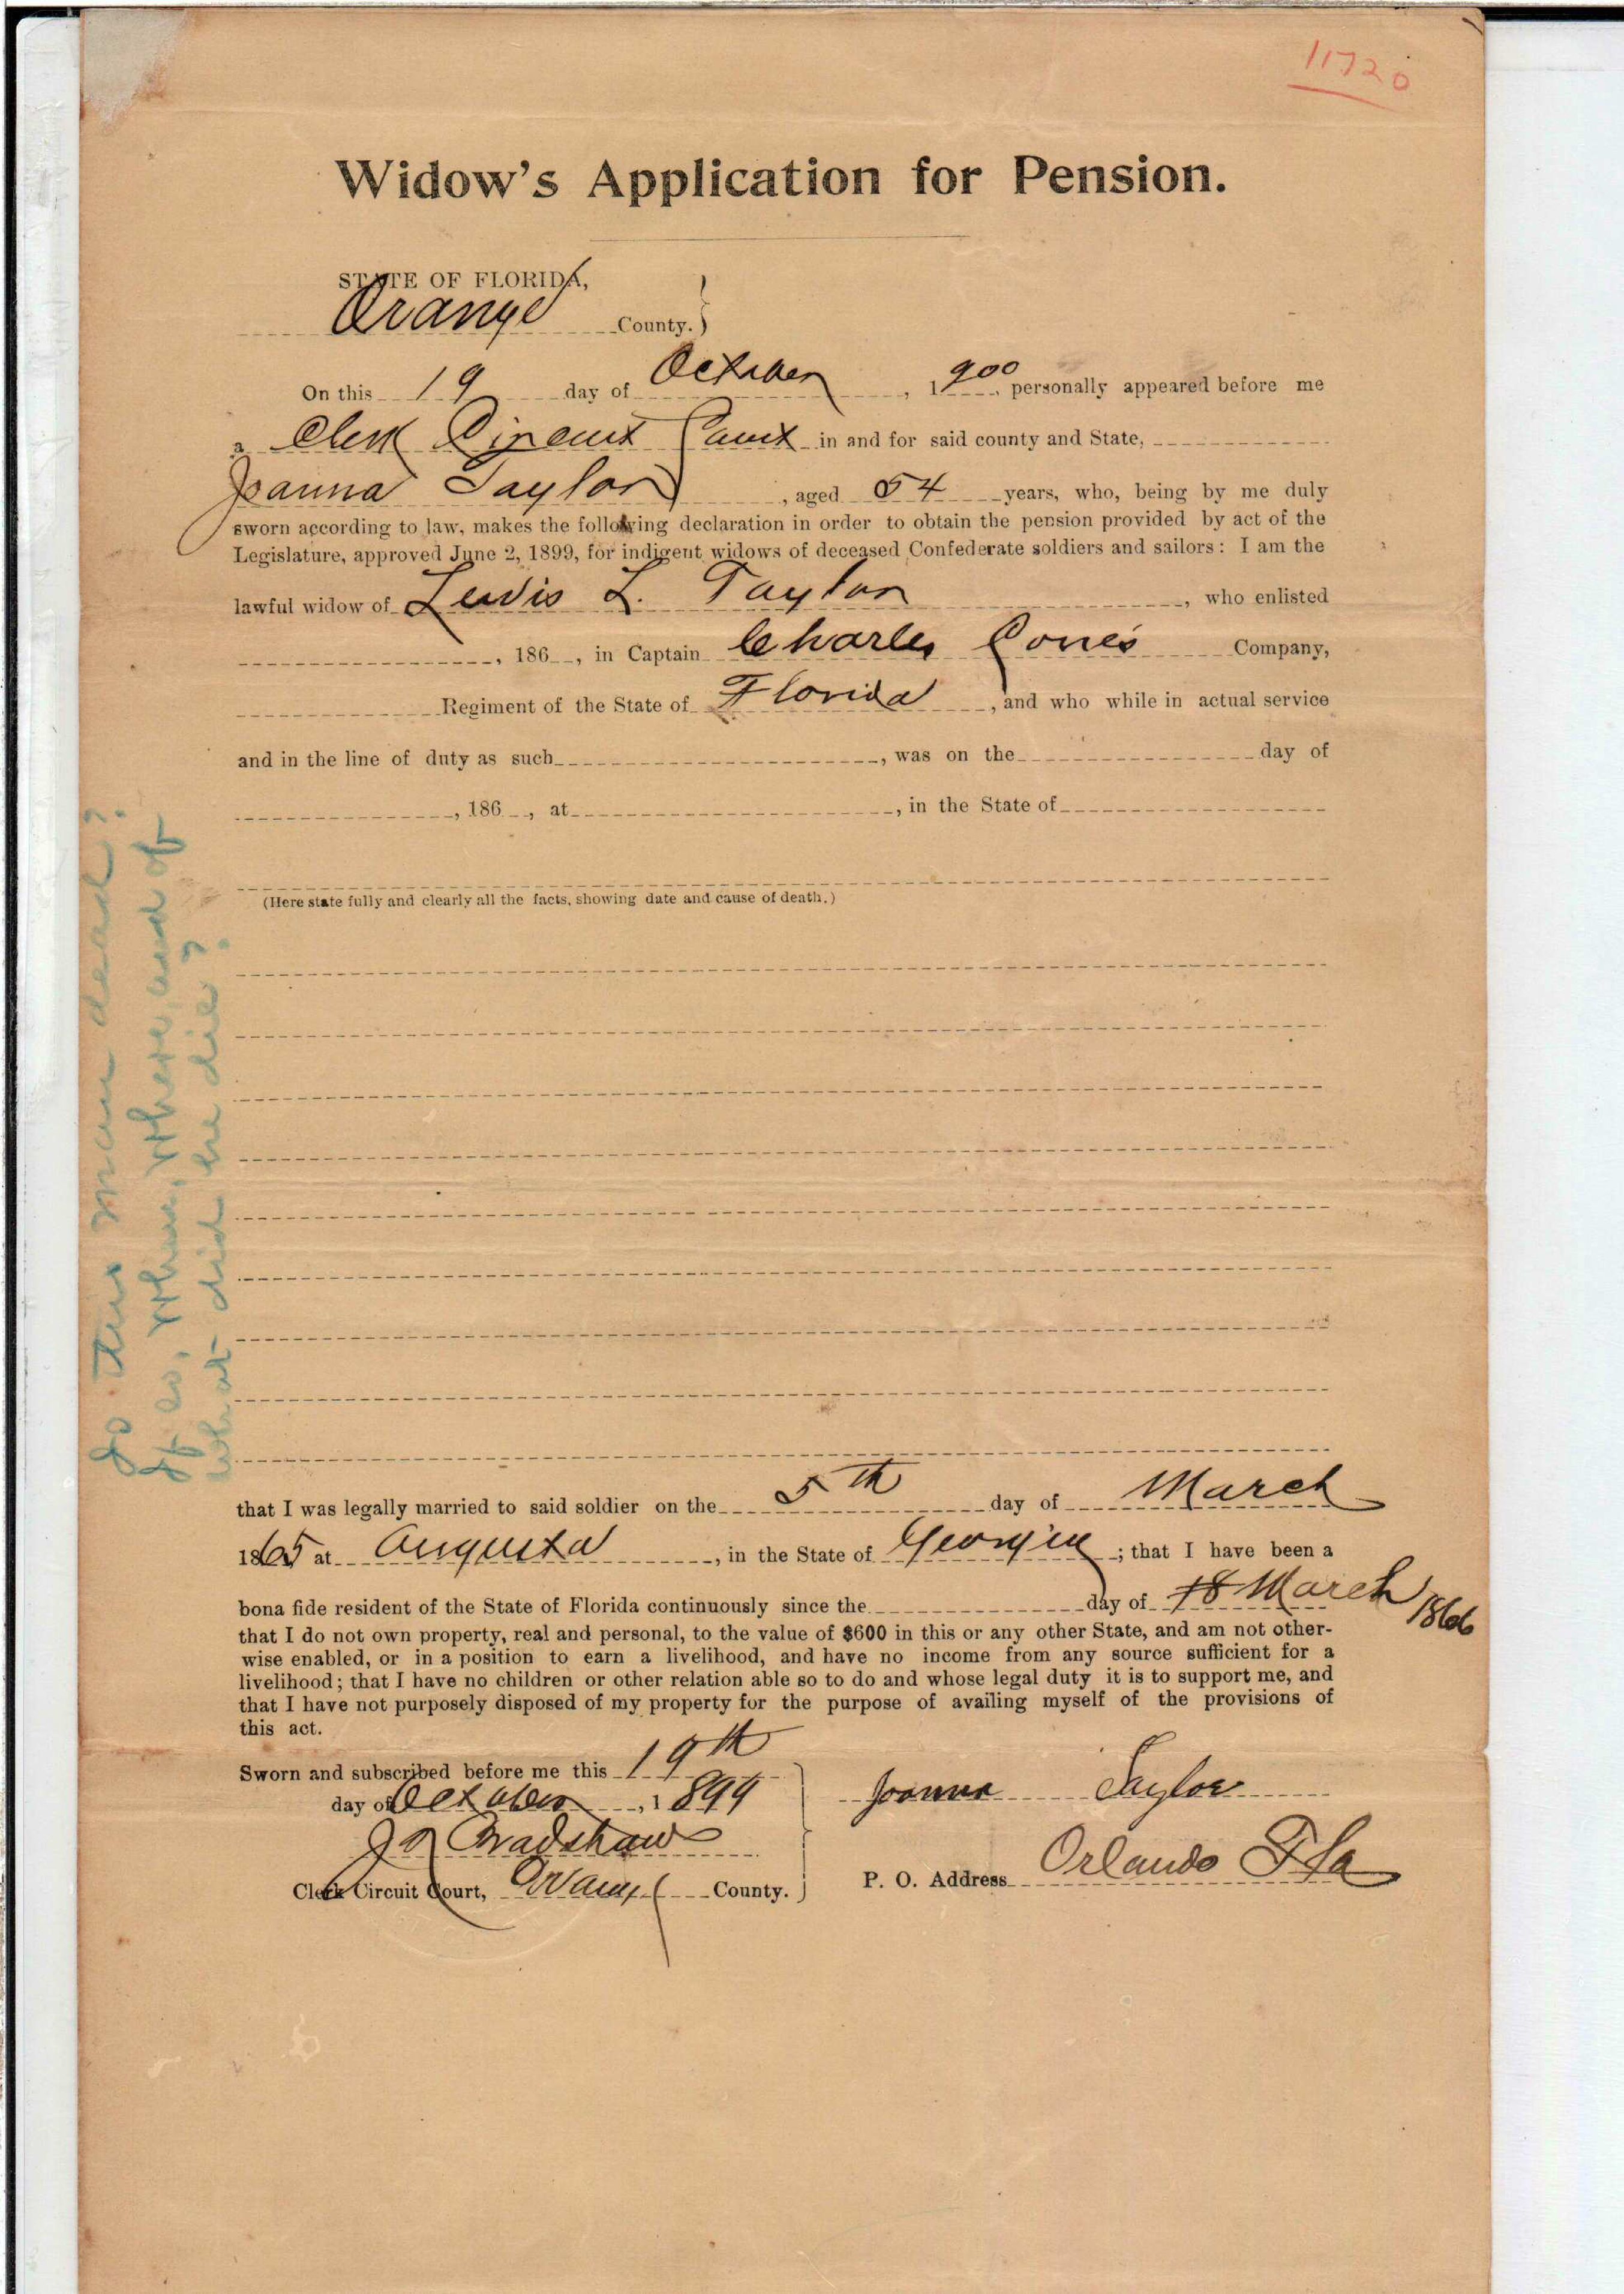 11720
Widow's Application for Pension.
STATE OF FLORIDA,
Orange County.
On this 19 day of October, 1900, personally appeared before me
a Clerk Circuit Court in and for said county and State,
Joanna Taylor, aged 54 years, who, being by me duly
sworn according to law, makes the following declaration in order to obtain the pension provided by act of the
Legislature, approved June 2, 1899, for indigent widows of deceased Confederate soldiers and sailors: I am the
lawful widow of Lewis L. Taylor, who enlisted
, 186 , in Captain Charles Cone's Company,
Regiment of the State of Florida, and who while in actual service
and in the line of duty as such , was on the day of
, 186 , at , in the State of
(Here state fully and clearly all the facts, showing date and cause of death.)
that I was legally married to said soldier on the 5th day of March
1865 at Augusta, in the State of Georgia; that I have been a
bona fide resident of the State of Florida continuously since the day of 18 March 1866
that I do not own property, real and personal, to the value of $600 in this or any other State, and am not other-
wise enabled, or in a position to earn a livelihood, and have no income from any source sufficient for a
livelihood; that I have no children or other relation able so to do and whose legal duty it is to support me, and
that I have not purposely disposed of my property for the purpose of availing myself of the provisions of
this act.
Sworn and subscribed before me this 19th
day of October, 1899
Bradshaw
Clerk Circuit Court, Orange County.
Joanna Taylor
P. O. Address Orlando Fla
Is this man dead?
If so, when, where, and of
what did he die?